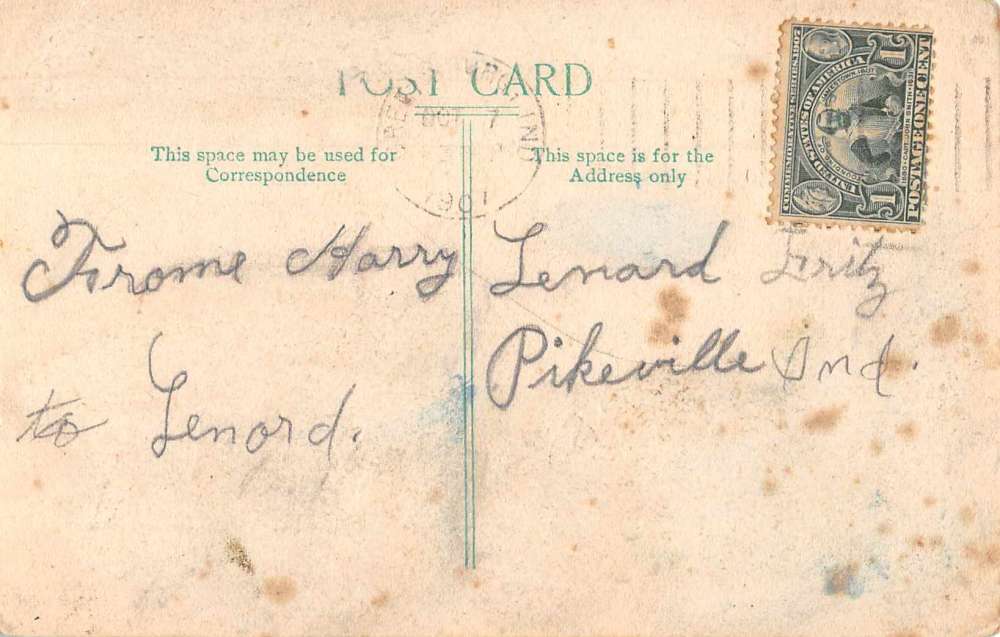 POST CARD
OCT 7
IND
1907
This space may be used for
Correspondence
This space is for the
Address only
COMMEMORATIVE SERIES, 1907
UNITED STATES OF AMERICA
FOUNDING OF JAMESTOWN, 1607
1580 CAPT. JOHN SMITH 1631
POSTAGE ONE CENT
1
1
Frome Harry
to Lenord.
Lenard Fritz
Pikeville Ind.